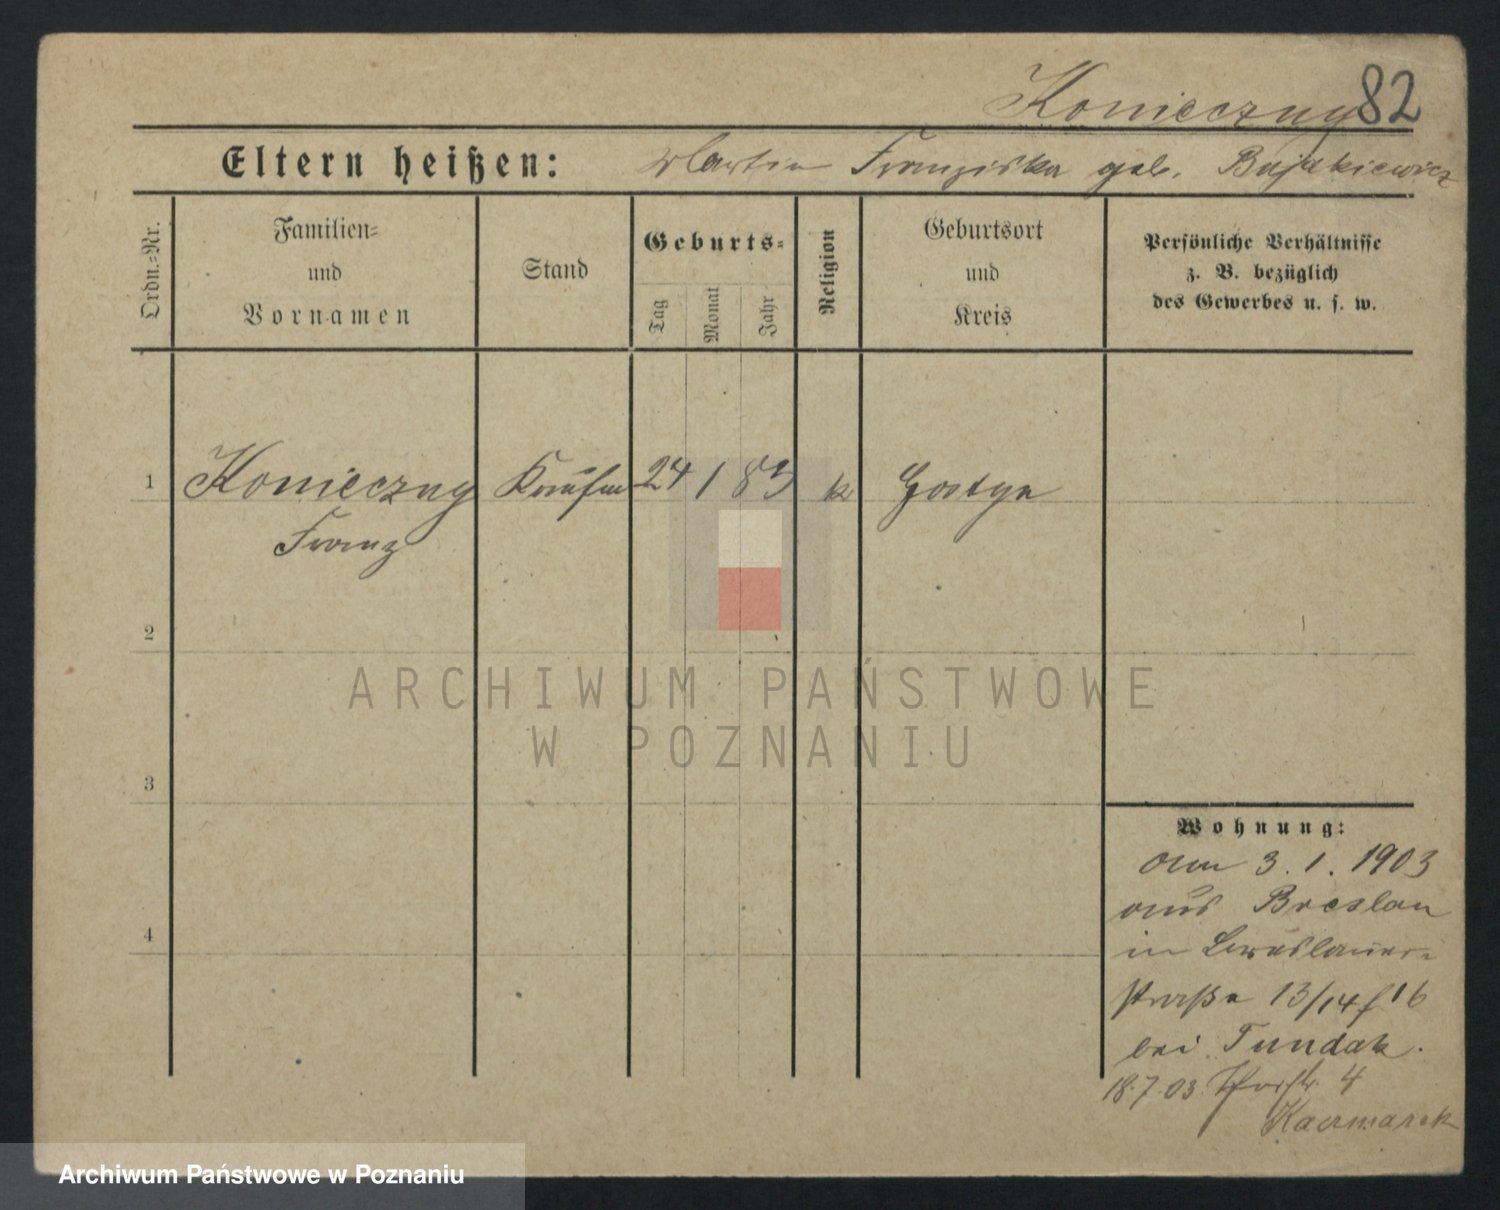 Konieczny 82
Eltern heißen: Martin Franziska geb. Bajakiewicz
Ordn.-Nr.
Familien-
und
Vornamen
Stand
Geburts-
Tag
Monat
Jahr
Religion
Geburtsort
und
Kreis
Persönliche Verhältnisse
z. B. bezüglich
des Gewerbes u. s. w.
1 Konieczny Kaufm 24 1 83 k Gostyn
Franz
2
3
4
Wohnung:
am 3. 1. 1903
aus Breslau
in Breslauer-
straße 13/14 f 16
bei Tundak.
18.7.03 4
Kaczmarek
ARCHIWUM PAŃSTWOWE
W POZNANIU
Archiwum Państwowe w Poznaniu